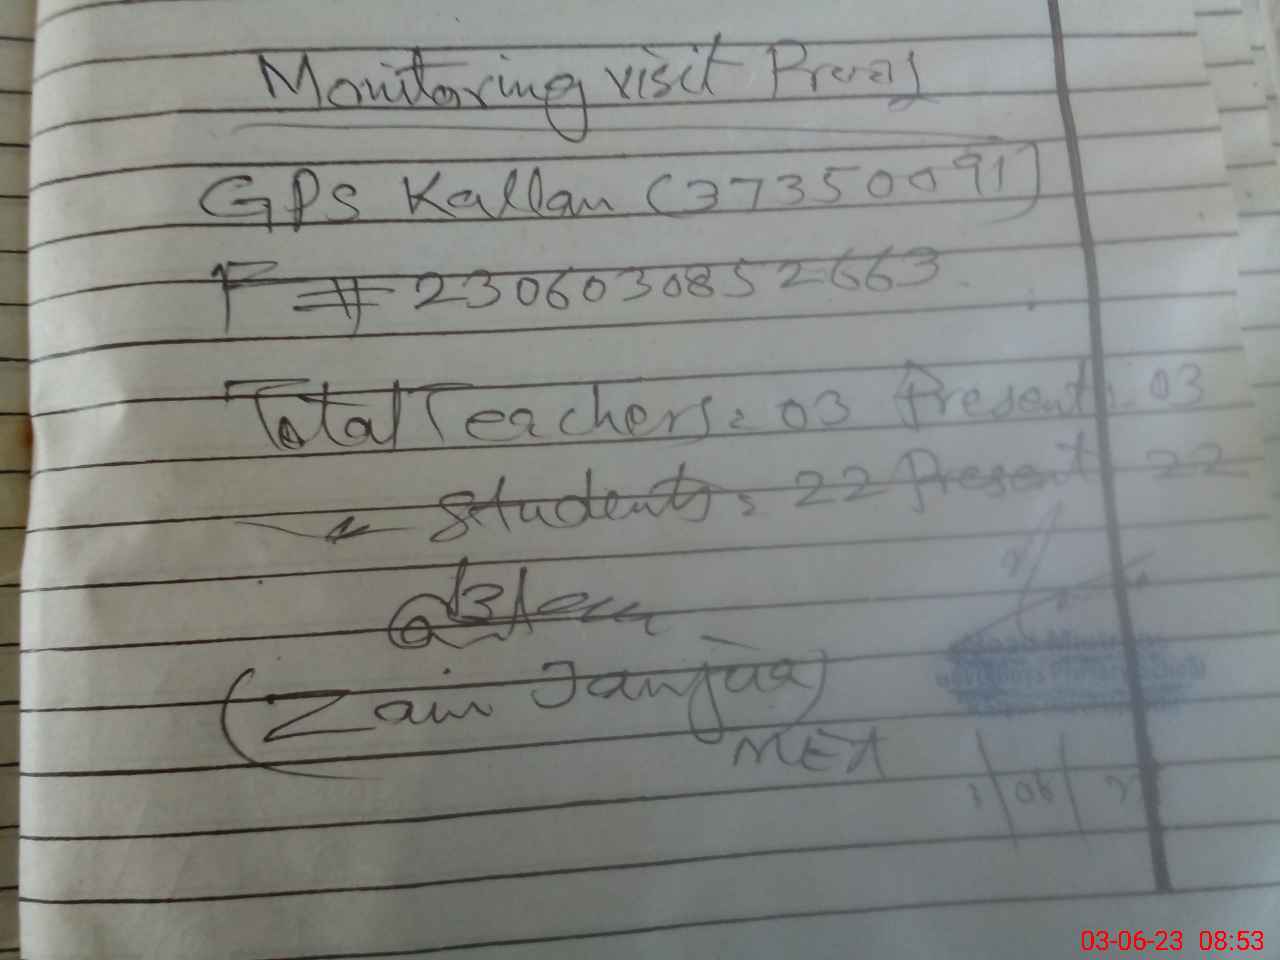 Monitoring visit Proof
GPS Kallan (37350091)
F # 2306030852663
Total Teachers: 03 Present: 03
" Students: 22 Present 22
(Zain Janjua)
MEA
03-06-23 08:53